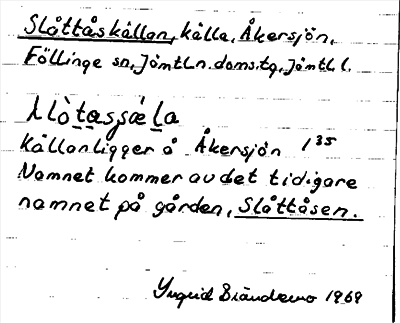 Slåttåskällan, källa, Åkersjön,
Föllinge sn, Jämtl.n. doms.tg, Jämtl. l.
Källan ligger å Åkersjön 1³⁵
Namnet kommer av det tidigare
namnet på gården, Slåttåsen.
Yngrid 1969